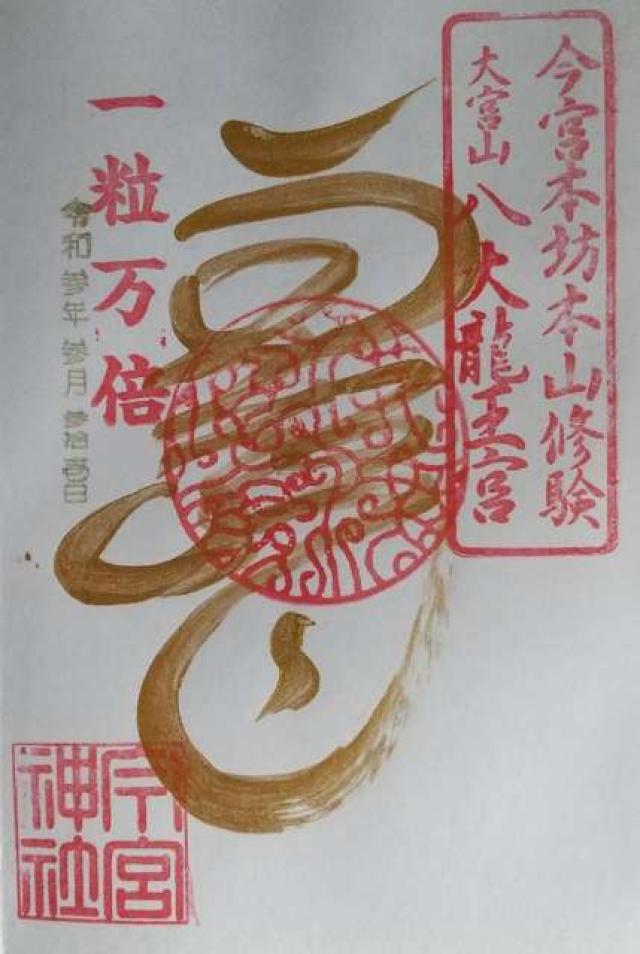 今宮本坊本山修験
大宮山 八大龍王宮
一粒万倍
令和参年参月参拾壱日
今宮神社